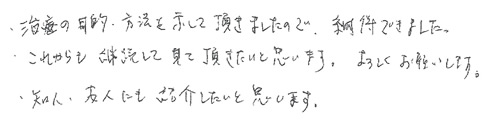 ・治療の目的・方法を示して頂きましたので、納得できました。
・これからも継続して見て頂きたいと思います。よろしくお願いします。
・知人・友人にも紹介したいと思います。